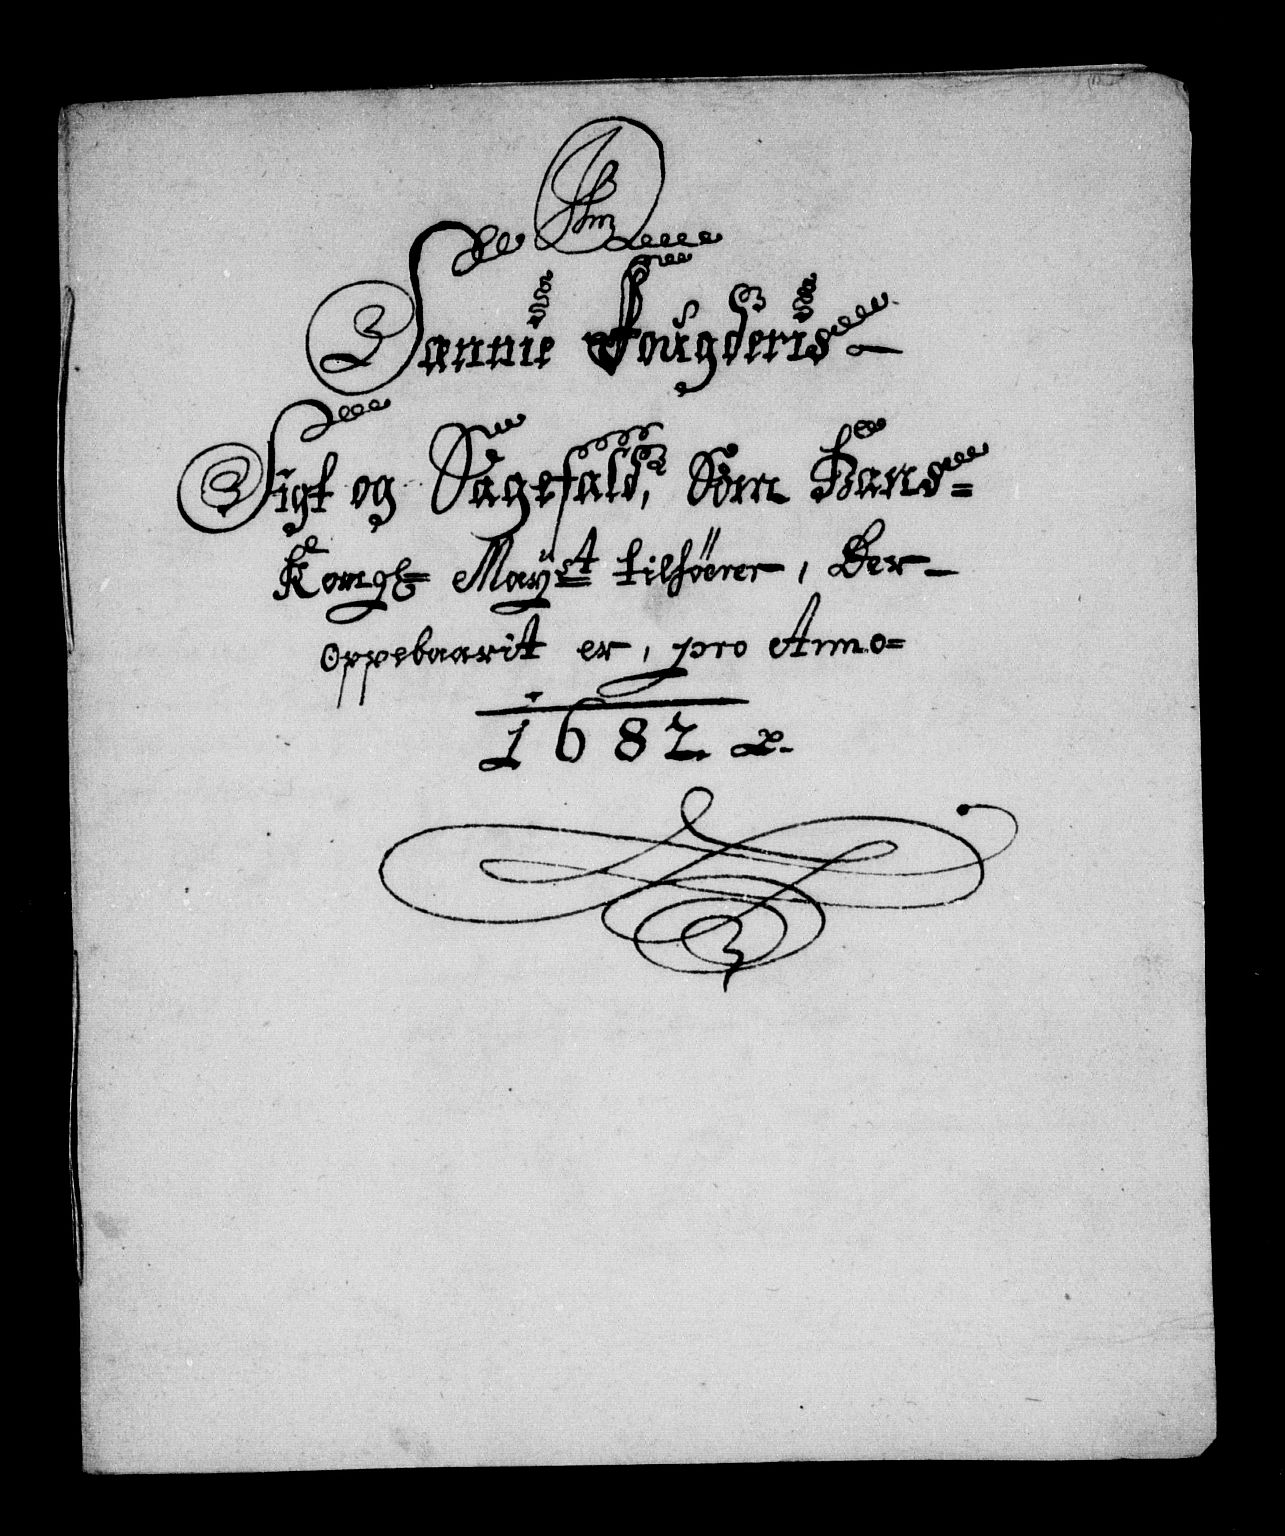 Sannie Fougderis
Sigt og Sagefald, Som Hans=
Kongl= Mayst tilhöerer, Der-
oppebaarit er, pro Anno=
1682.